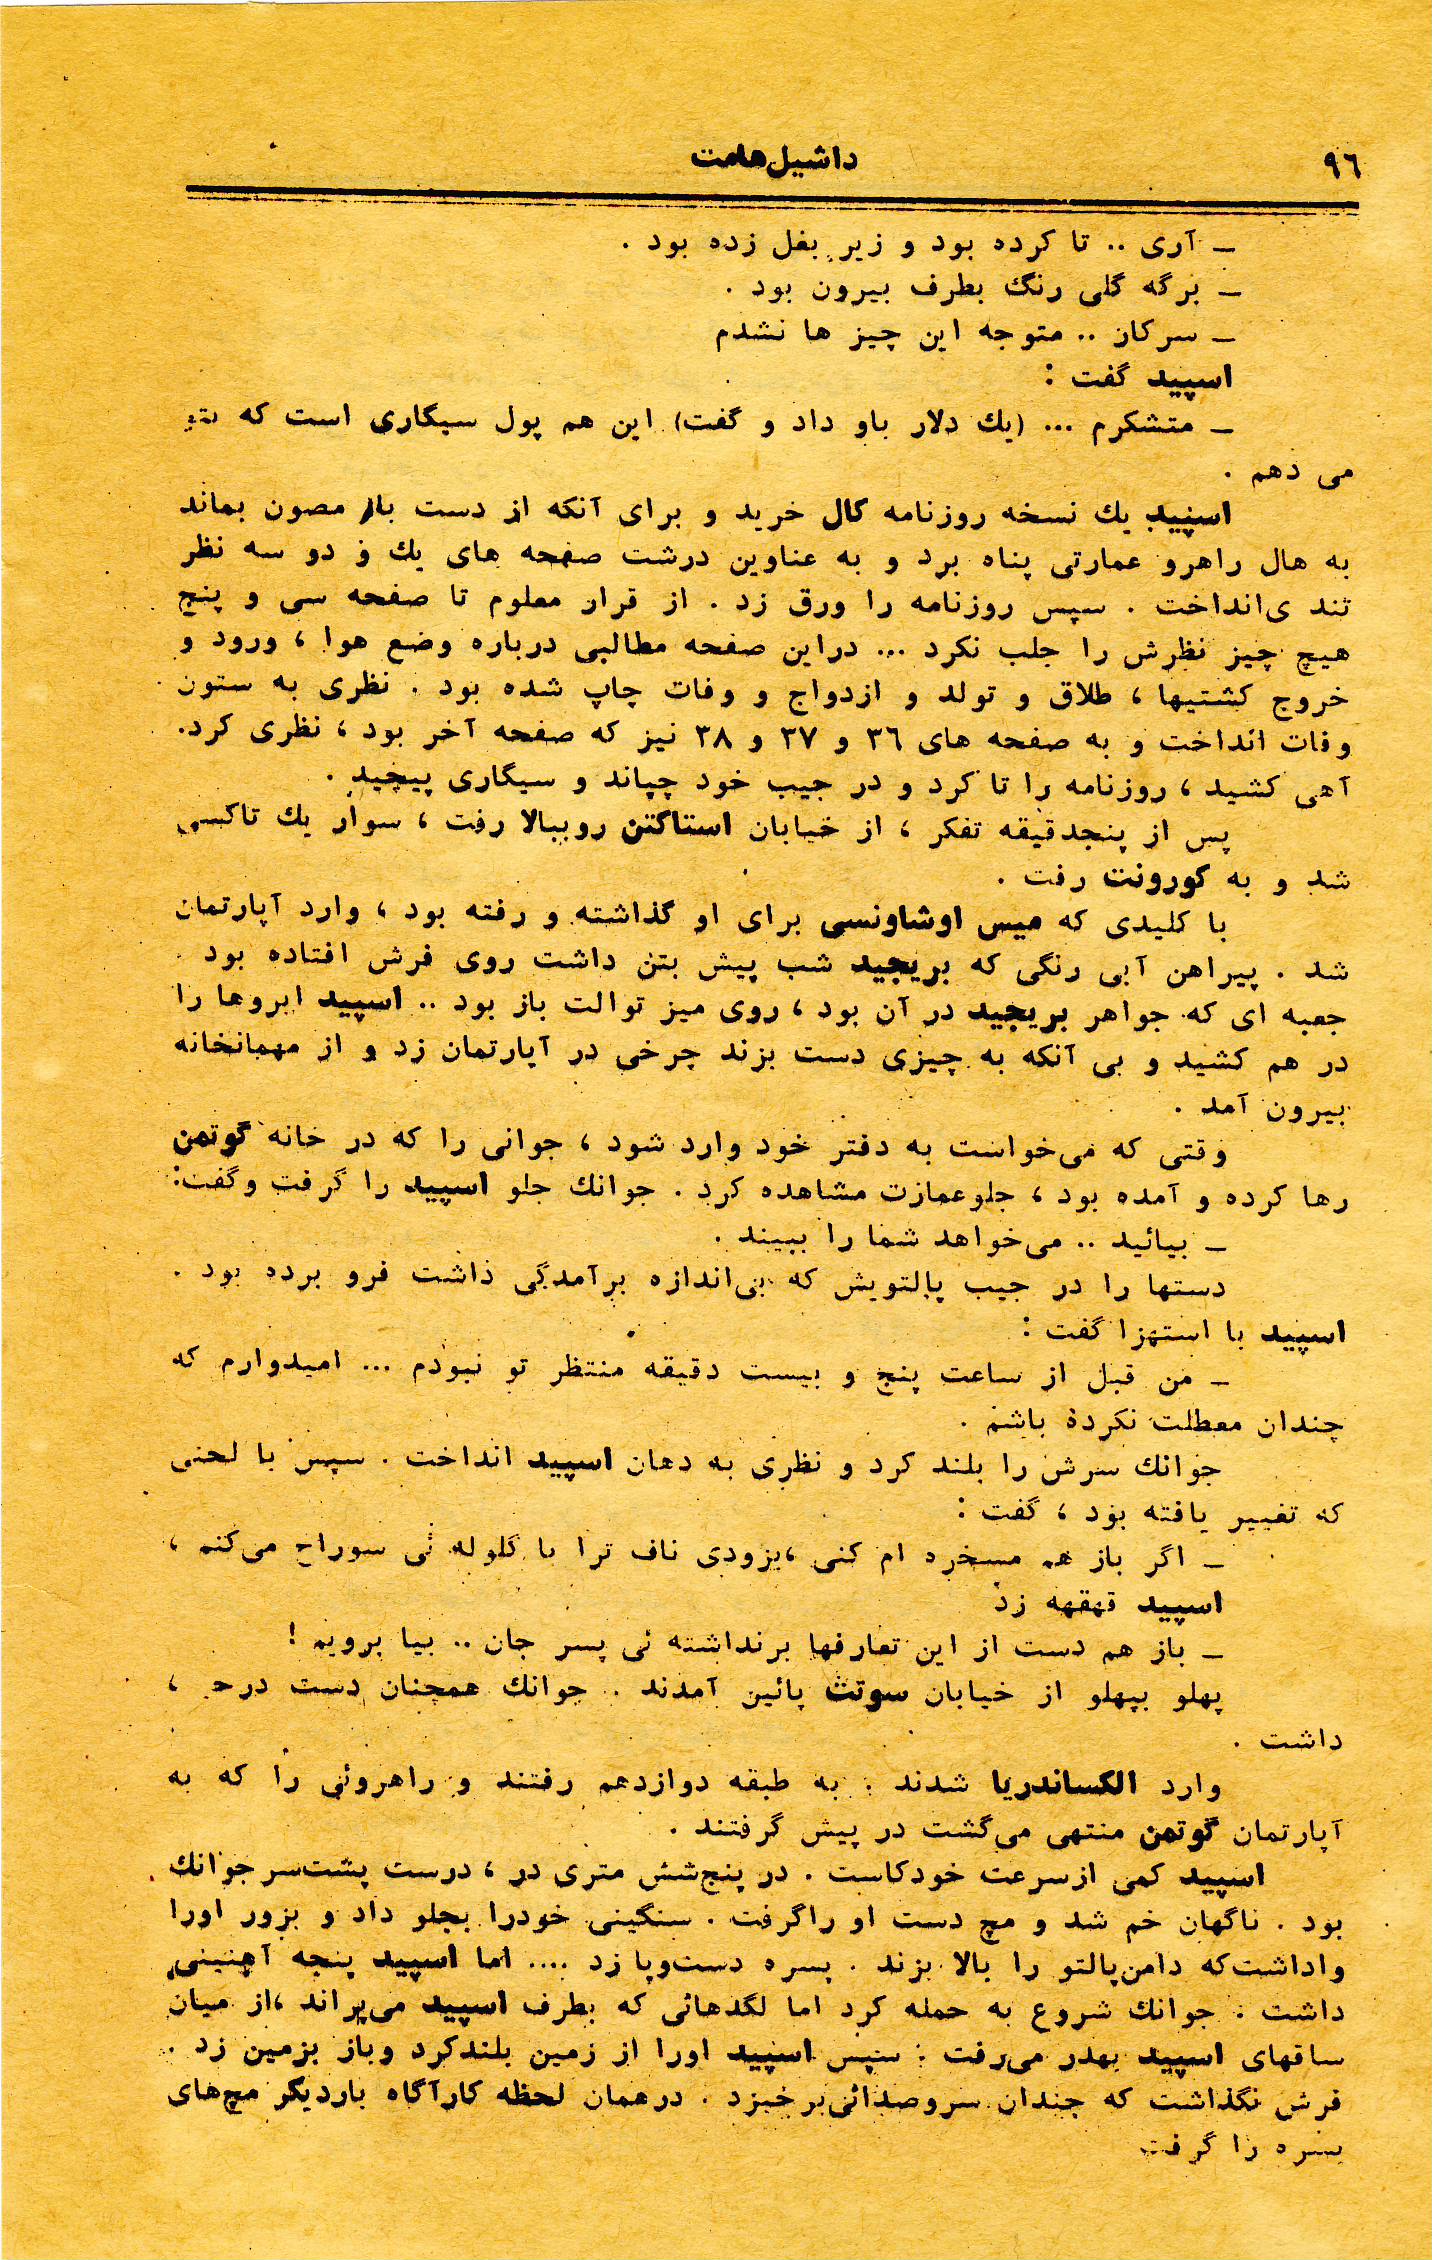 ٩٦
داشیل‌هامت
ـ آری .. تا کرده بود و زیر بغل زده بود .
ـ برگه گلی رنگ بطرف بیرون بود .
ـ سرکار .. متوجه این چیز ها نشدم
اسپید گفت :
ـ متشکرم ... (یك دلار باو داد و گفت) این هم پول سیگاری است که بتو
می دهم .
اسپید یك نسخه روزنامه کال خرید و برای آنکه از دست باز مصون بماند
به هال راهرو عمارتی پناه برد و به عناوین درشت صفحه های یك و دو سه نظر
تند ی‌انداخت . سپس روزنامه را ورق زد . از قرار معلوم تا صفحه سی و پنج
هیچ چیز نظرش را جلب نکرد ... دراین صفحه مطالبی درباره وضع هوا ، ورود و
خروج کشتیها ، طلاق و تولد و ازدواج و وفات چاپ شده بود . نظری به ستون
وفات انداخت و به صفحه های ۳٦ و ۳۷ و ۳۸ نیز که صفحه آخر بود ، نظری کرد.
آهی کشید ، روزنامه را تا کرد و در جیب خود چپاند و سیگاری پیچید .
پس از پنجدقیقه تفکر ، از خیابان استاکتن روببالا رفت ، سوار یك تاکسی
شد و به کورونت رفت .
با کلیدی که میس اوشاونسی برای او گذاشته و رفته بود ، وارد آپارتمان
شد . پیراهن آبی رنگی که بریجید شب پیش بتن داشت روی فرش افتاده بود .
جعبه ای که جواهر بریجید در آن بود ، روی میز توالت باز بود .. اسپید ابروها را
در هم کشید و بی آنکه به چیزی دست بزند چرخی در آپارتمان زد و از مهمانخانه
بیرون آمد .
وقتی که می‌خواست به دفتر خود وارد شود ، جوانی را که در خانه گوتمن
رها کرده و آمده بود ، جلوعمارت مشاهده کرد . جوانك جلو اسپید را گرفت وگفت:
ـ بیائید .. می‌خواهد شما را ببیند .
دستها را در جیب پالتویش که بی‌اندازه برآمدگی داشت فرو برده بود .
اسپید با استهزا گفت :
ـ من قبل از ساعت پنج و بیست دقیقه منتظر تو نبودم ... امیدوارم که
چندان معطلت نکرده باشم .
جوانك سرش را بلند کرد و نظری به دهان اسپید انداخت . سپس با لحنی
که تغییر یافته بود ، گفت :
ـ اگر باز هم مسخره ام کنی ،بزودی ناف ترا با گلوله ئی سوراخ می‌کنم ،
اسپید قهقهه زد
ـ باز هم دست از این تعارفها برنداشته ئی پسر جان .. بیا برویم !
پهلو بپهلو از خیابان سوتث پائین آمدند . جوانك همچنان دست در ،
داشت .
وارد الکساندریا شدند . به طبقه دوازدهم رفتند و راهروئی را که به
آپارتمان گوتمن منتهی می‌گشت در پیش گرفتند .
اسپید کمی ازسرعت خودکاست . در پنج‌شش متری در ، درست پشت‌سر جوانك
بود . ناگهان خم شد و مچ دست او راگرفت . سنگینی خودرا بجلو داد و بزور اورا
واداشت‌که دامن‌پالتو را بالا بزند . پسره دست‌وپا زد .... اما اسپید پنجه آهنینی
داشت . جوانك شروع به حمله کرد اما لگدهائی که بطرف اسپید می‌پراند ،از میان
ساقهای اسپید بهدر می‌رفت . سپس اسپید اورا از زمین بلندکرد وباز بزمین زد .
فرش نگذاشت که چندان سروصدائی‌برخیزد . درهمان لحظه کارآگاه باردیگر مچ‌های
پسره را گرفت